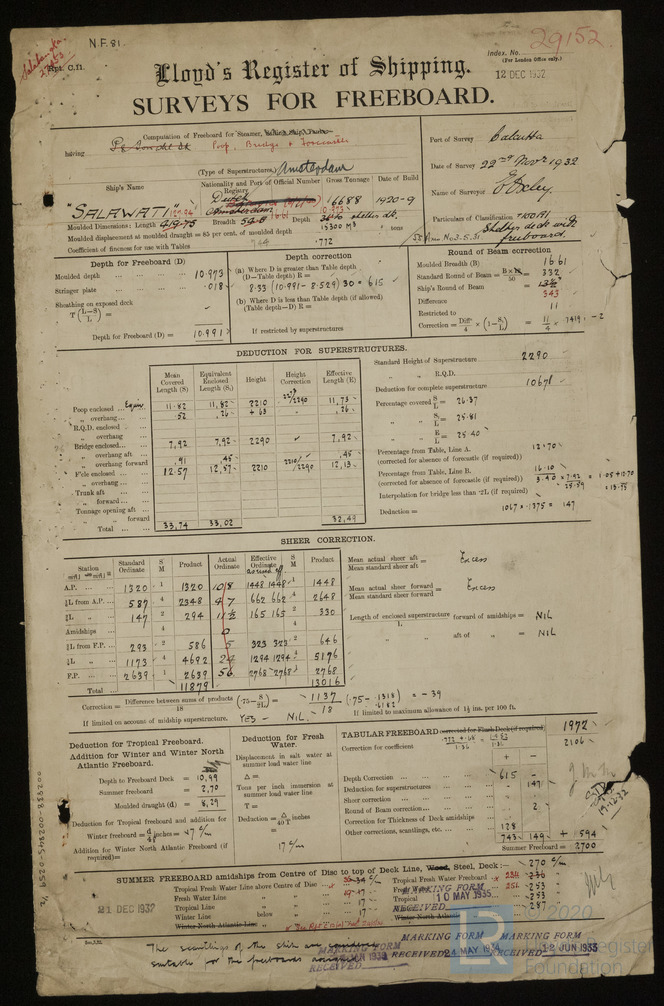 N.F. 81.
Rpt. C.11.
Index. No. 29152.
(For London Office only.)
12 DEC 1932
Lloyd's Register of Shipping.
SURVEYS FOR FREEBOARD.
Computation of Freeboard for Steamer,
having Poop, Bridge & Forecastle
(Type of Superstructures.) Amsterdam
Port of Survey Calcutta
Date of Survey 22nd Novr 1932
Name of Surveyor
Particulars of Classification +100A1
Shelter deck with freeboard.
Ship's Name
Nationality and Port of Registry
Official Number
Gross Tonnage
Date of Build
"SALAWATI"
Dutch
Amsterdam
16658
1920-9
Moulded Dimensions: Length 419.75 Breadth Depth shelter dk.
Moulded displacement at moulded draught = 85 per cent. of moulded depth 15300 M3 tons
Coefficient of fineness for use with Tables .772
Depth for Freeboard (D)
Moulded depth 10.973
Stringer plate .018
Sheathing on exposed deck
T(L-S/L) =
Depth for Freeboard (D) = 10.991
Depth correction
(a) Where D is greater than Table depth
(D-Table depth) R =
8.33 (10.991 - 8.529) 30 = 615
(b) Where D is less than Table depth (if allowed)
(Table depth-D) R =
If restricted by superstructures
Round of Beam correction
Moulded Breadth (B) 16.61
Standard Round of Beam = 332
Ship's Round of Beam = 343
Difference 11
Restricted to
Correction = Diff/4 × (1 - S1/L) = 11/4 × .7419 = -2
DEDUCTION FOR SUPERSTRUCTURES.
Mean Covered Length (S)
Equivalent Enclosed Length (S1)
Height
Height Correction
Effective Length (E)
Poop enclosed 11.82 11.82 2210 2210/2290 11.73
" overhang .52 .26 .26
R.Q.D. enclosed
" overhang
Bridge enclosed 7.92 7.92 2290 7.92
" overhang aft
" overhang forward .91 .45 .45
F'cle enclosed 12.57 12.57 2210 2210/2290 12.13
" overhang
Trunk aft
" forward
Tonnage opening aft
" forward
Total 33.74 33.02 32.49
Standard Height of Superstructure 2290
" " R.Q.D.
Deduction for complete superstructure 1067
Percentage covered S/L = 26.37
" " S1/L = 25.81
" " E/L = 25.40
Percentage from Table, Line A. 12.70
(corrected for absence of forecastle (if required))
Percentage from Table, Line B. 16.10
(corrected for absence of forecastle (if required))
Interpolation for bridge less than .2L (if required)
Deduction = 1067 × .1375 = 147
SHEER CORRECTION.
Station
Standard Ordinate
S M
Product
Actual Ordinate
Effective Ordinate
S M
Product
A.P. 1320 1 1320 108 1448 1448 1 1448
⅙L from A.P. 587 4 2348 47 662 662 4 2648
⅓L " 147 2 294 11½ 165 165 2 330
Amidships 4 0 4
⅓L from F.P. 293 2 586 5 323 323 2 646
⅙L " 1173 4 4692 24 1294 1294 4 5176
F.P. 2639 1 2639 56 2768 2768 1 2768
Total 11879 13016
Mean actual sheer aft / Mean standard sheer aft = Excess
Mean actual sheer forward / Mean standard sheer forward = Excess
Length of enclosed superstructure / L forward of amidships = NIL
" " aft of " = NIL
Correction = Difference between sums of products / 18 (.75 - S/2L) = 1137/18 (.75 - .1318) = -39
If limited on account of midship superstructure. YES - NIL.
If limited to maximum allowance of 1½ ins. per 100 ft.
Deduction for Tropical Freeboard.
Addition for Winter and Winter North Atlantic Freeboard.
Depth to Freeboard Deck = 10,99
Summer freeboard = 2,70
Moulded draught (d) = 8,29
Deduction for Tropical freeboard and addition for
Winter freeboard = d/4 inches = 17 c/m
Addition for Winter North Atlantic Freeboard (if required) =
Deduction for Fresh Water.
Displacement in salt water at summer load water line
Δ =
Tons per inch immersion at summer load water line
T =
Deduction = Δ/40T inches =
17 c/m
TABULAR FREEBOARD corrected for Flush Deck (if required) 1972
Correction for coefficient 2106
+ -
Depth Correction 615
Deduction for superstructures 147
Sheer correction
Round of Beam correction 2
Correction for Thickness of Deck amidships
Other corrections, scantlings, etc. 128
743 149 + 594
Summer Freeboard = 2700
19.12.32
SUMMER FREEBOARD amidships from Centre of Disc to top of Deck Line, Wood, Steel, Deck :- 270 c/m
Tropical Fresh Water Line above Centre of Disc 34
Fresh Water Line " 17
Tropical Line " 17
Winter Line below 17
Winter North Atlantic Line "
Tropical Fresh Water Freeboard 236
253
Tropical 253
287
Winter North Atlantic "
21 DEC 1932
MARKING FORM
RECEIVED 10 MAY 1935
MARKING FORM
RECEIVED 24 MAY 1934
MARKING FORM
12 JUN 1933
MARKING FORM
RECEIVED
The scantlings of the ship are considered
suitable for the freeboards assigned
002938-002945-0259 1/2
© 2020
Lloyd's Register
Foundation